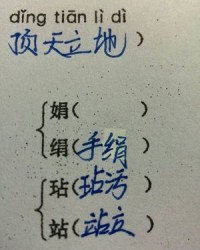 dǐng tiān lì dì
顶天立地）
娟（　　）
绢（手绢）
玷（玷污）
站（站立）